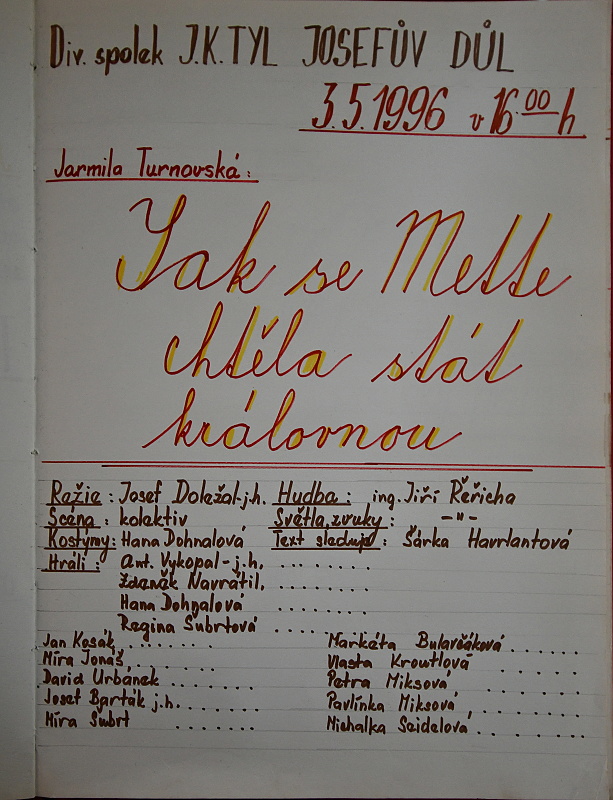 Div. spolek J.K.TYL JOSEFŮV DŮL
3.5.1996 v 16.00 h
Jarmila Turnovská:
Jak se Mette
chtěla stát
královnou
Režie: Josef Doležal j.h. Hudba: ing. Jiří Řeřicha
Scéna: kolektiv Světla, zvuky: -"-
Kostýmy: Hana Dohnalová Text sleduje: Šárka Havrlantová
Hráli: Ant. Vykopal - j.h. ..........
Zdeněk Navrátil. ..........
Hana Dohnalová ..........
Regina Šubrtová ..........
Jan Kosák, ......... Markéta Bulavčáková .......
Míra Jonáš, ......... Vlasta Kroutlová .......
David Urbánek ......... Petra Miksová .......
Josef Barták j.h. ......... Pavlínka Miksová .......
Míra Šubrt ........ Michalka Seidelová .......